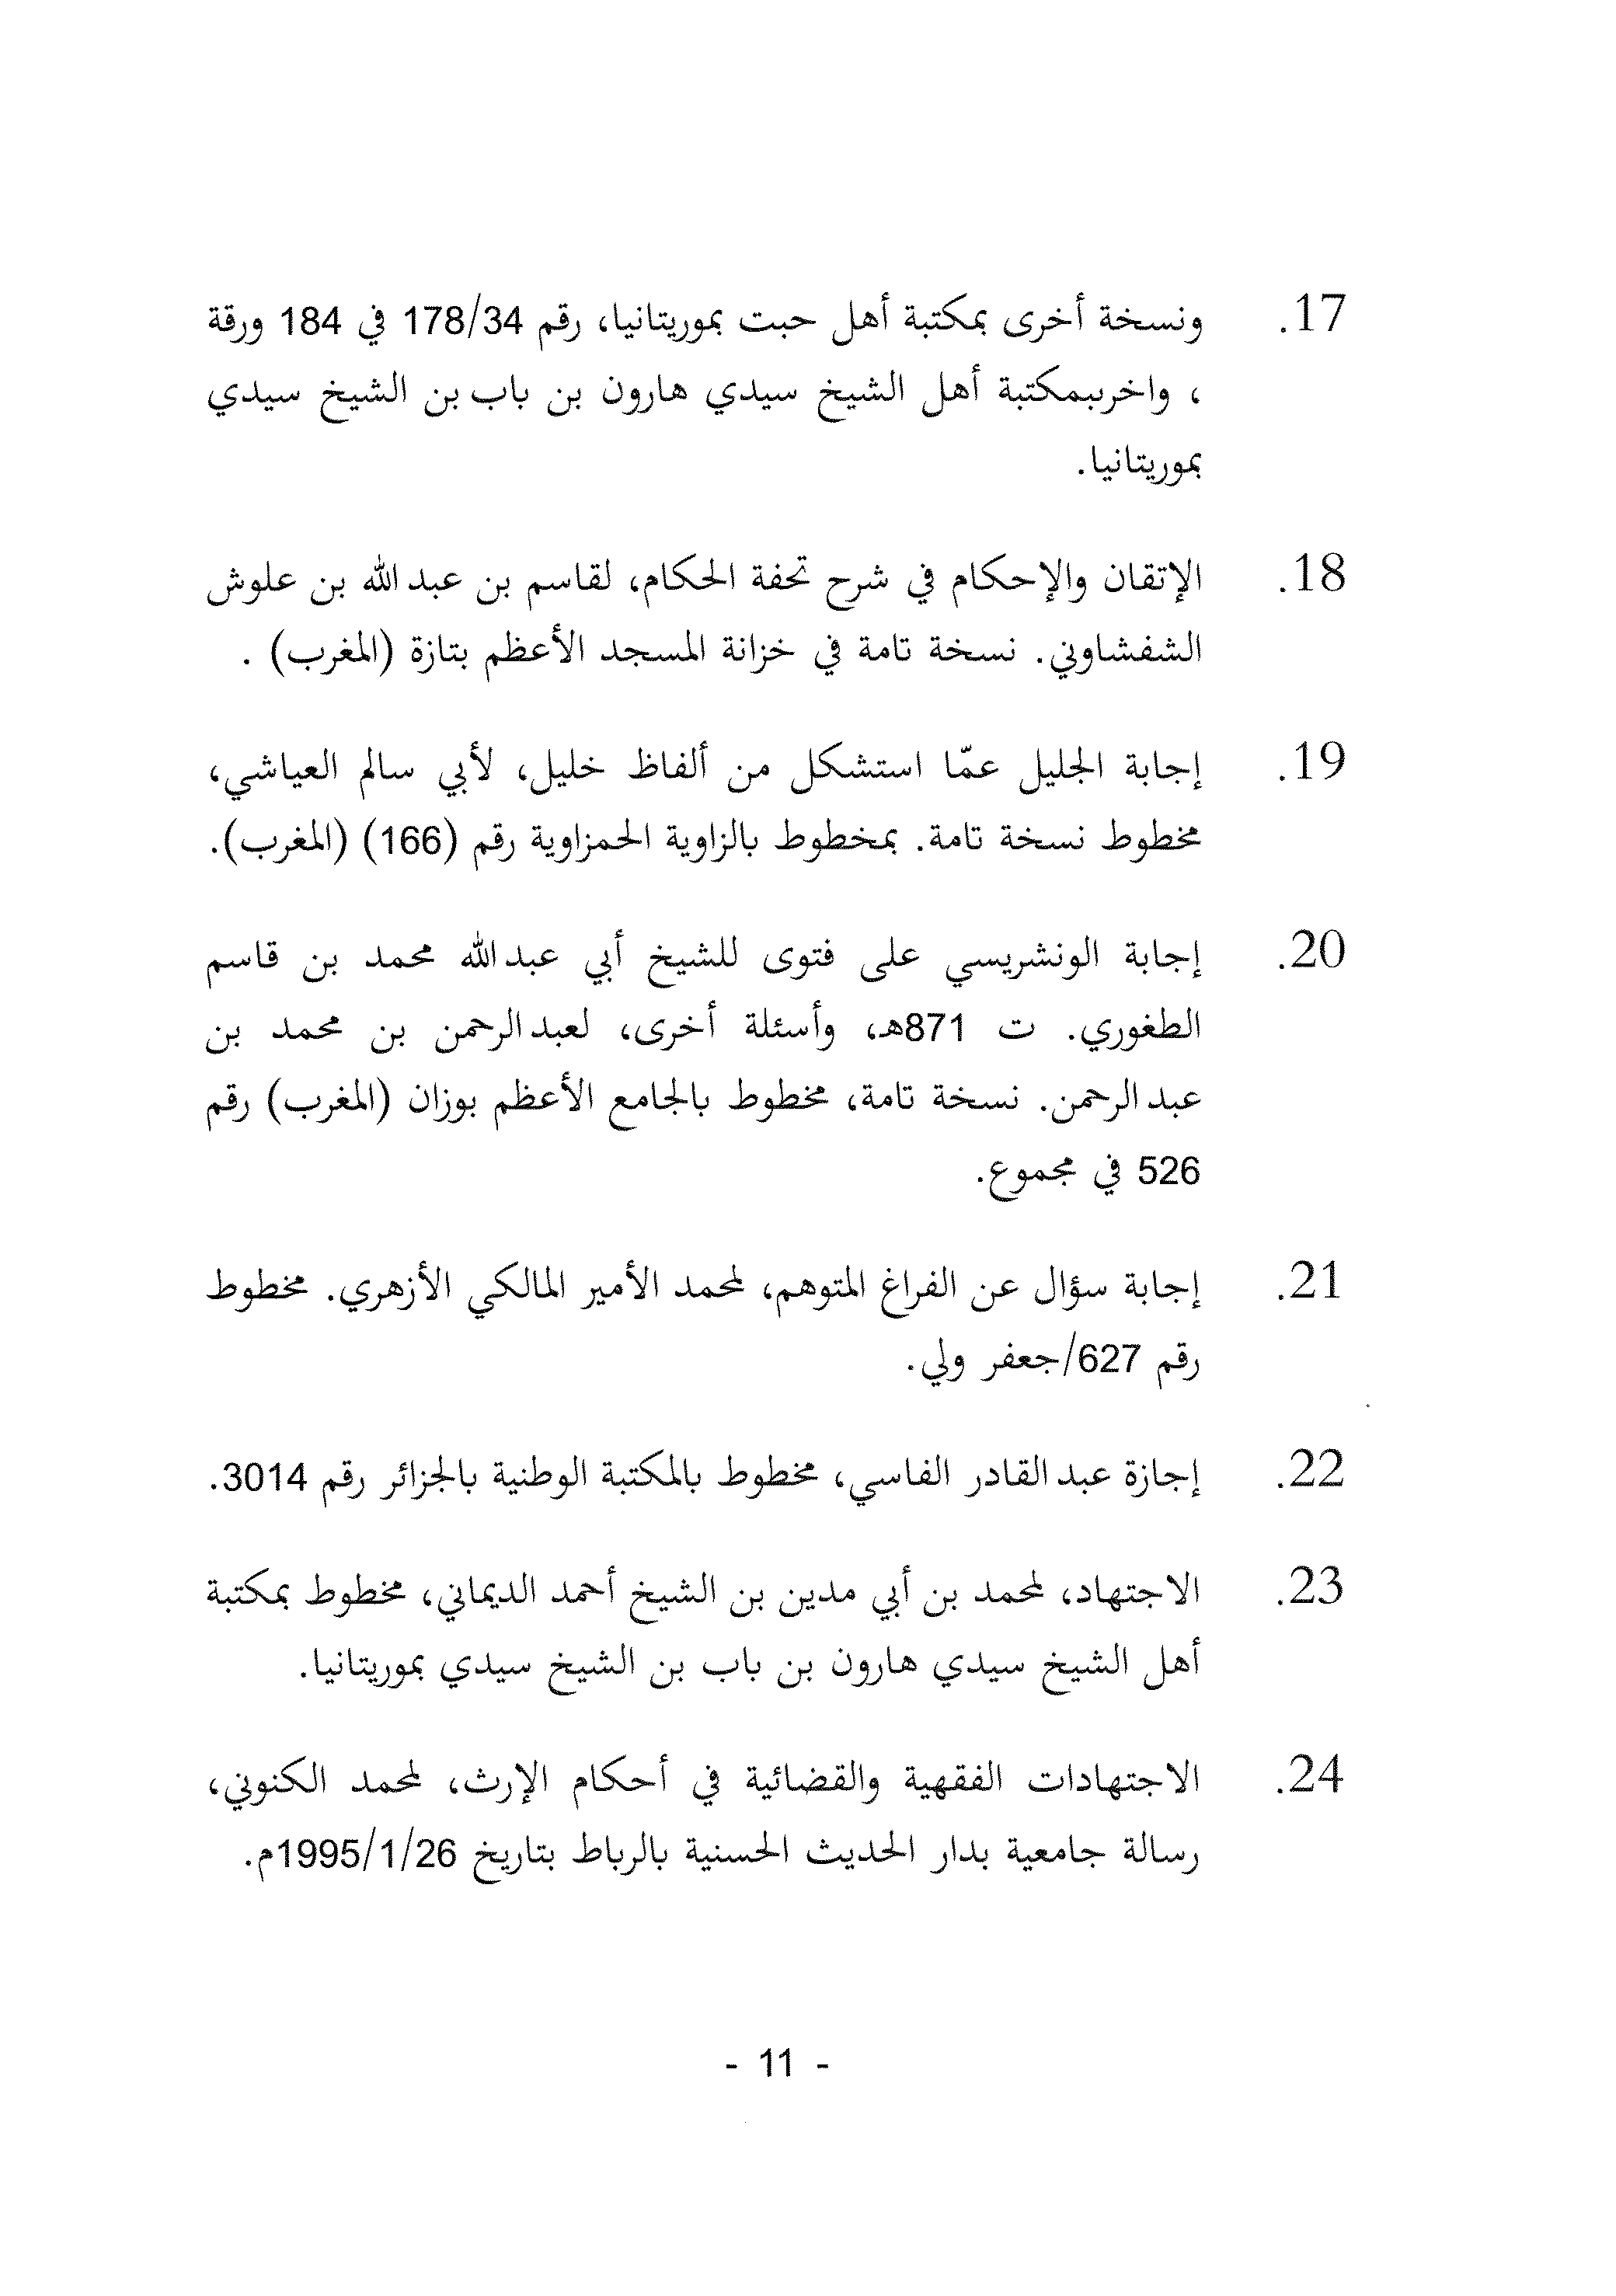 17. ونسخة أخرى بمكتبة أهل حبت بموريتانيا، رقم 178/34 في 184 ورقة
، واخربمكتبة أهل الشيخ سيدي هارون بن باب بن الشيخ سيدي
بموريتانيا.
18. الإتقان والإحكام في شرح تحفة الحكام، لقاسم بن عبدالله بن علوش
الشفشاوني. نسخة تامة في خزانة المسجد الأعظم بتازة (المغرب) .
19. إجابة الجليل عمّا استشكل من ألفاظ خليل، لأبي سالم العياشي،
مخطوط نسخة تامة. بمخطوط بالزاوية الحمزاوية رقم (166) (المغرب).
20. إجابة الونشريسي على فتوى للشيخ أبي عبدالله محمد بن قاسم
الطغوري. ت 871هـ، وأسئلة أخرى، لعبدالرحمن بن محمد بن
عبدالرحمن. نسخة تامة، مخطوط بالجامع الأعظم بوزان (المغرب) رقم
526 في مجموع.
21. إجابة سؤال عن الفراغ المتوهم، لمحمد الأمير المالكي الأزهري. مخطوط
رقم 627/جعفر ولي.
22. إجازة عبدالقادر الفاسي، مخطوط بالمكتبة الوطنية بالجزائر رقم 3014.
23. الاجتهاد، لمحمد بن أبي مدين بن الشيخ أحمد الديماني، مخطوط بمكتبة
أهل الشيخ سيدي هارون بن باب بن الشيخ سيدي بموريتانيا.
24. الاجتهادات الفقهية والقضائية في أحكام الإرث، لمحمد الكنوني،
رسالة جامعية بدار الحديث الحسنية بالرباط بتاريخ 1995/1/26م.
- 11 -